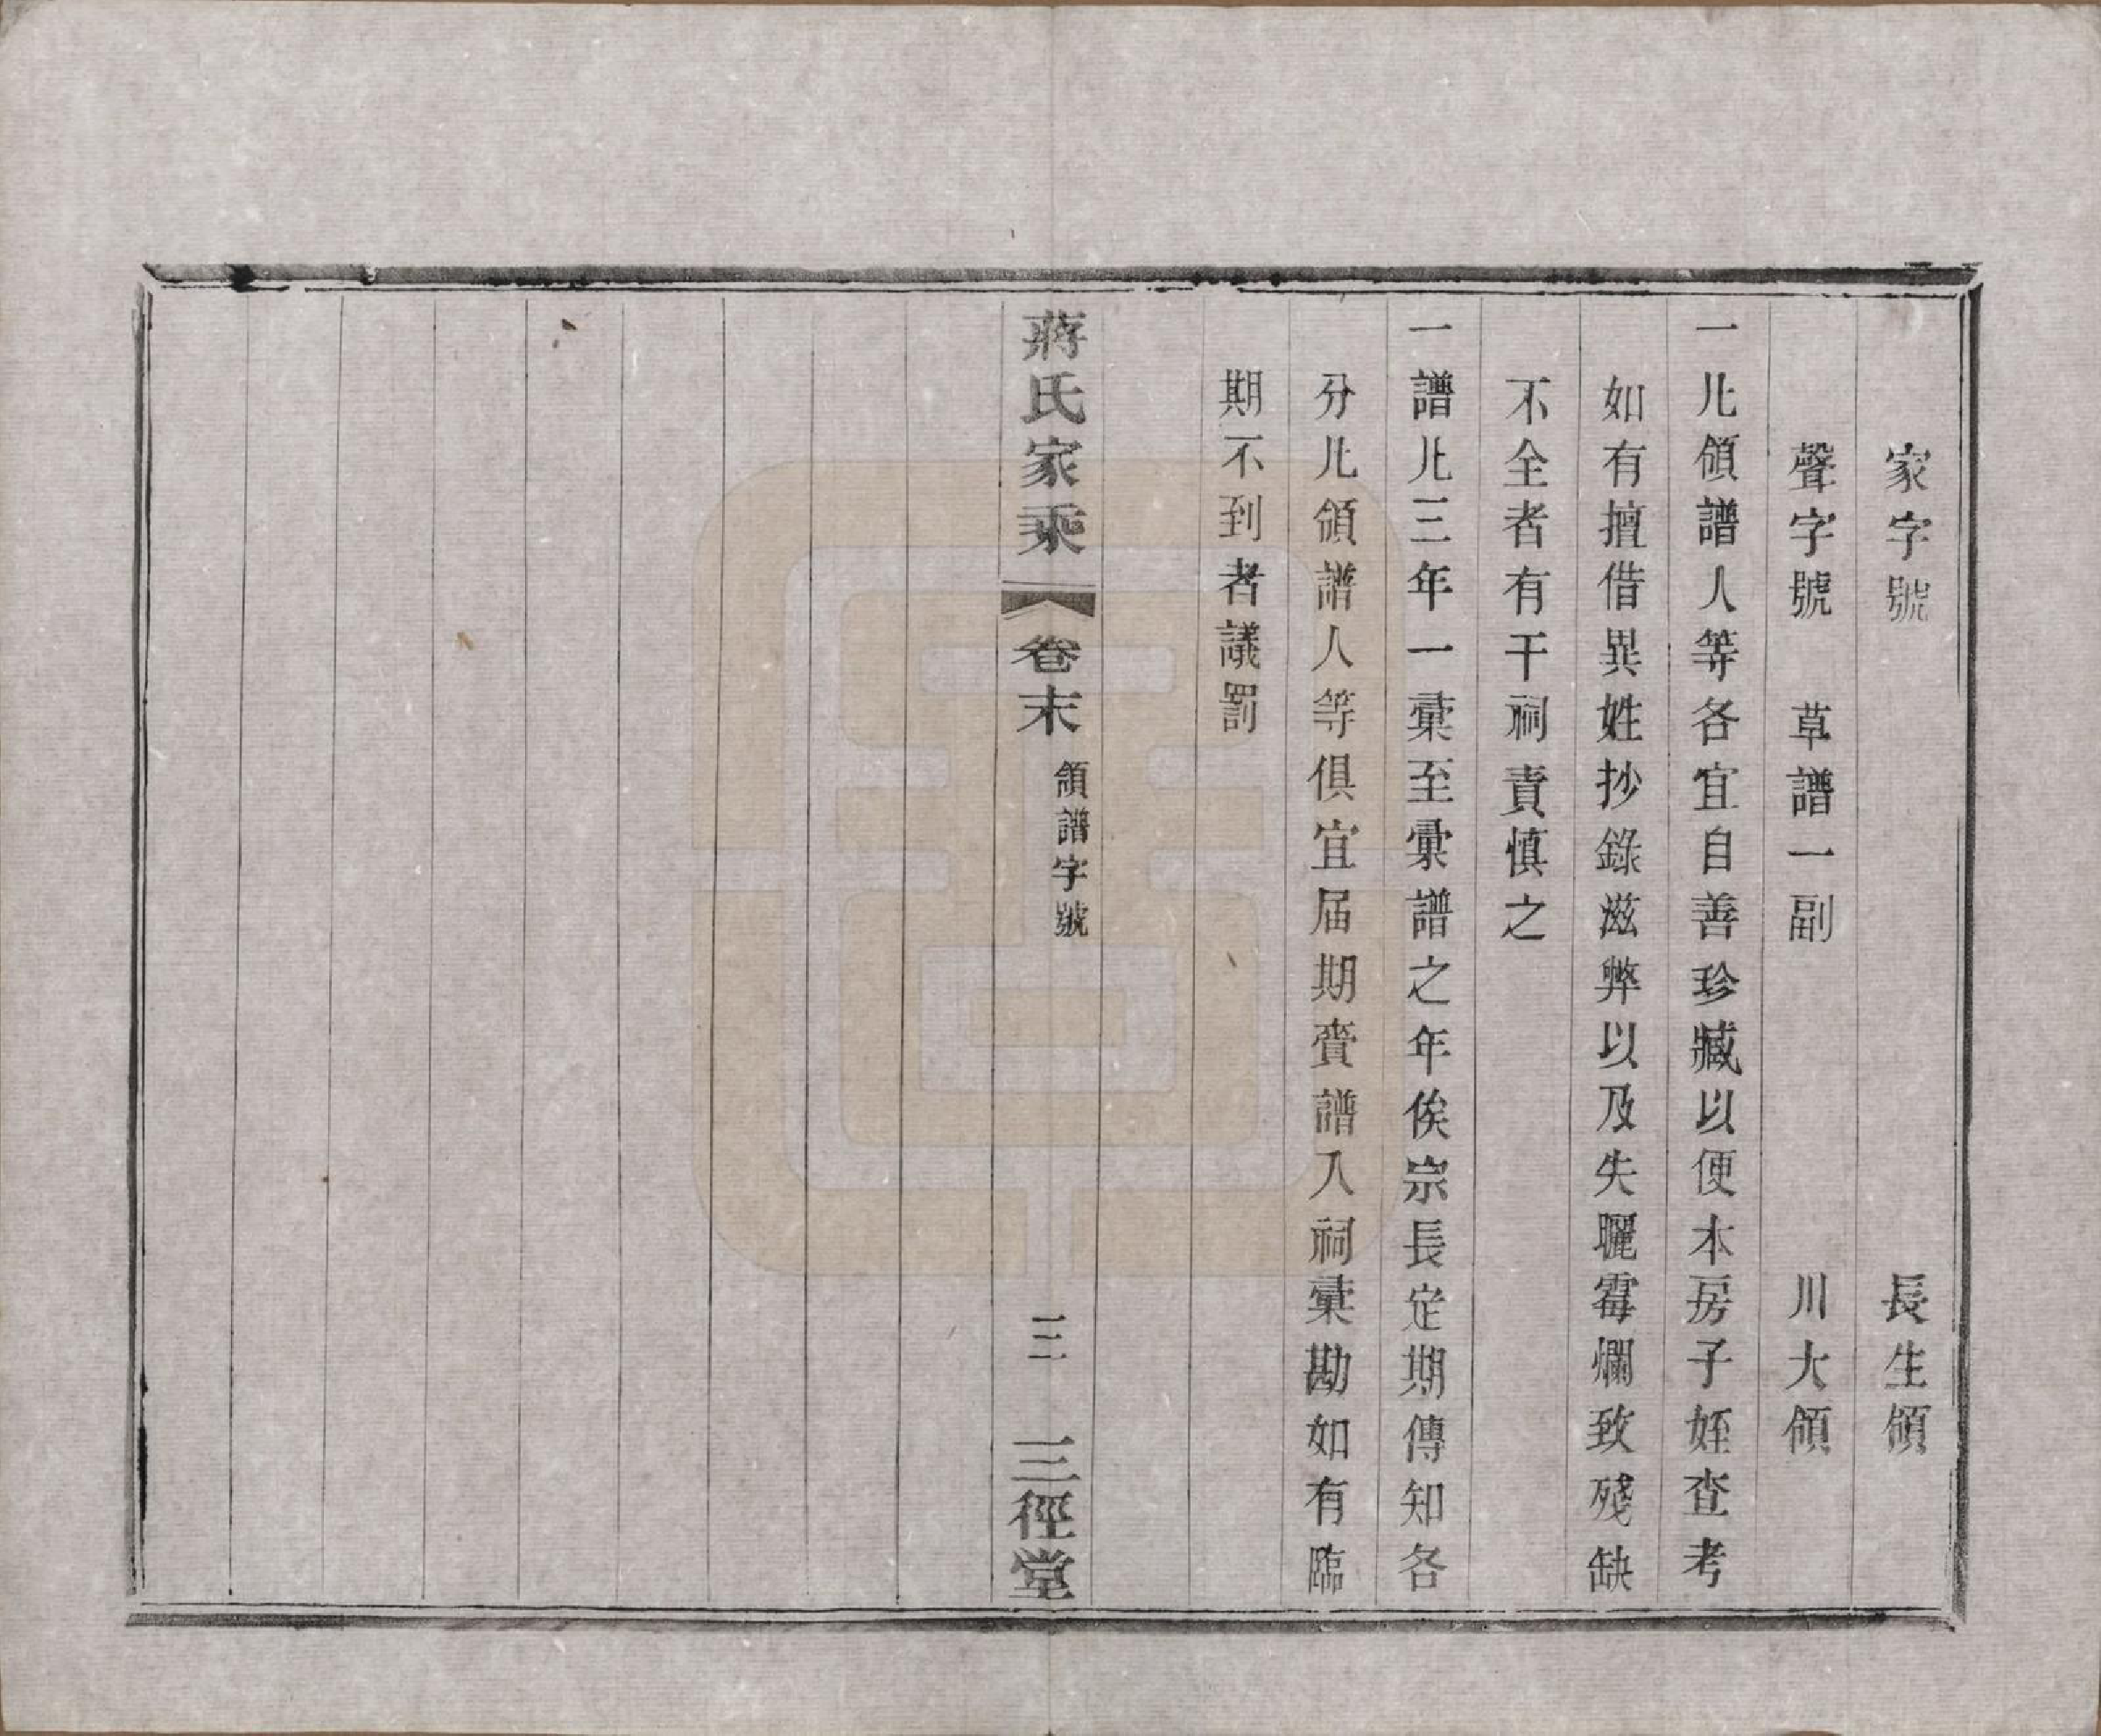 家字號　長生領
聲字號　草譜一副　川大領
一凡領譜人等各宜自善珍藏以便本房子姪查考
如有擅借異姓抄錄滋弊以及失曬霉爛致殘缺
不全者有干祠責慎之
一譜凡三年一彙至彙譜之年俟宗長定期傳知各
分凡領譜人等俱宜届期賫譜入祠彙勘如有臨
期不到者議罰
蔣氏家乘　卷末　領譜字號　三　三徑堂